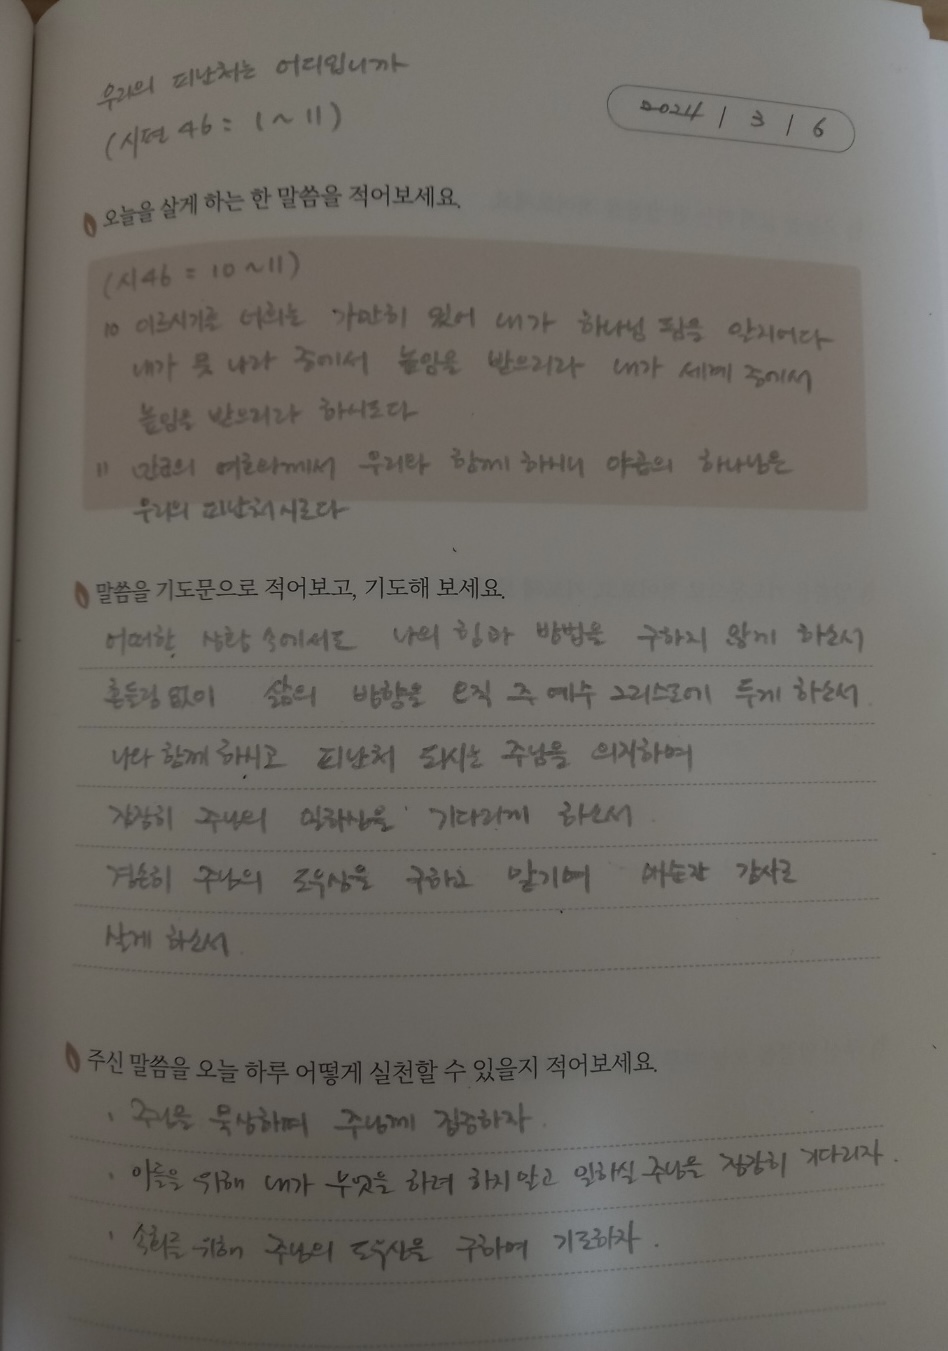 우리의 피난처는 어디입니까
(시편 46 : 1 ~ 11)
2024 / 3 / 6
오늘을 살게 하는 한 말씀을 적어보세요.
(시46 : 10 ~11)
10 이르시기를 너희는 가만히 있어 내가 하나님 됨을 알지어다
내가 뭇 나라 중에서 높임을 받으리라 내가 세계 중에서
높임을 받으리라 하시도다
11 만군의 여호와께서 우리와 함께 하시니 야곱의 하나님은
우리의 피난처시로다
말씀을 기도문으로 적어보고, 기도해 보세요.
어떠한 상황 속에서도 나의 힘과 방법을 구하지 않게 하소서
흔들림 없이 삶의 방향을 오직 주 예수 그리스도에 두게 하소서.
나와 함께 하시고 피난처 되시는 주님을 의지하여
잠잠히 주님의 일하심을 기다리게 하소서.
겸손히 주님의 도우심을 구하고 맡기며 매순간 감사로
살게 하소서.
주신 말씀을 오늘 하루 어떻게 실천할 수 있을지 적어보세요.
· 주님을 묵상하며 주님께 집중하자.
· 아들을 위해 내가 무엇을 하려 하지말고 일하실 주님을 잠잠히 기다리자.
· 속회를 위해 주님의 도우심을 구하며 기도하자.